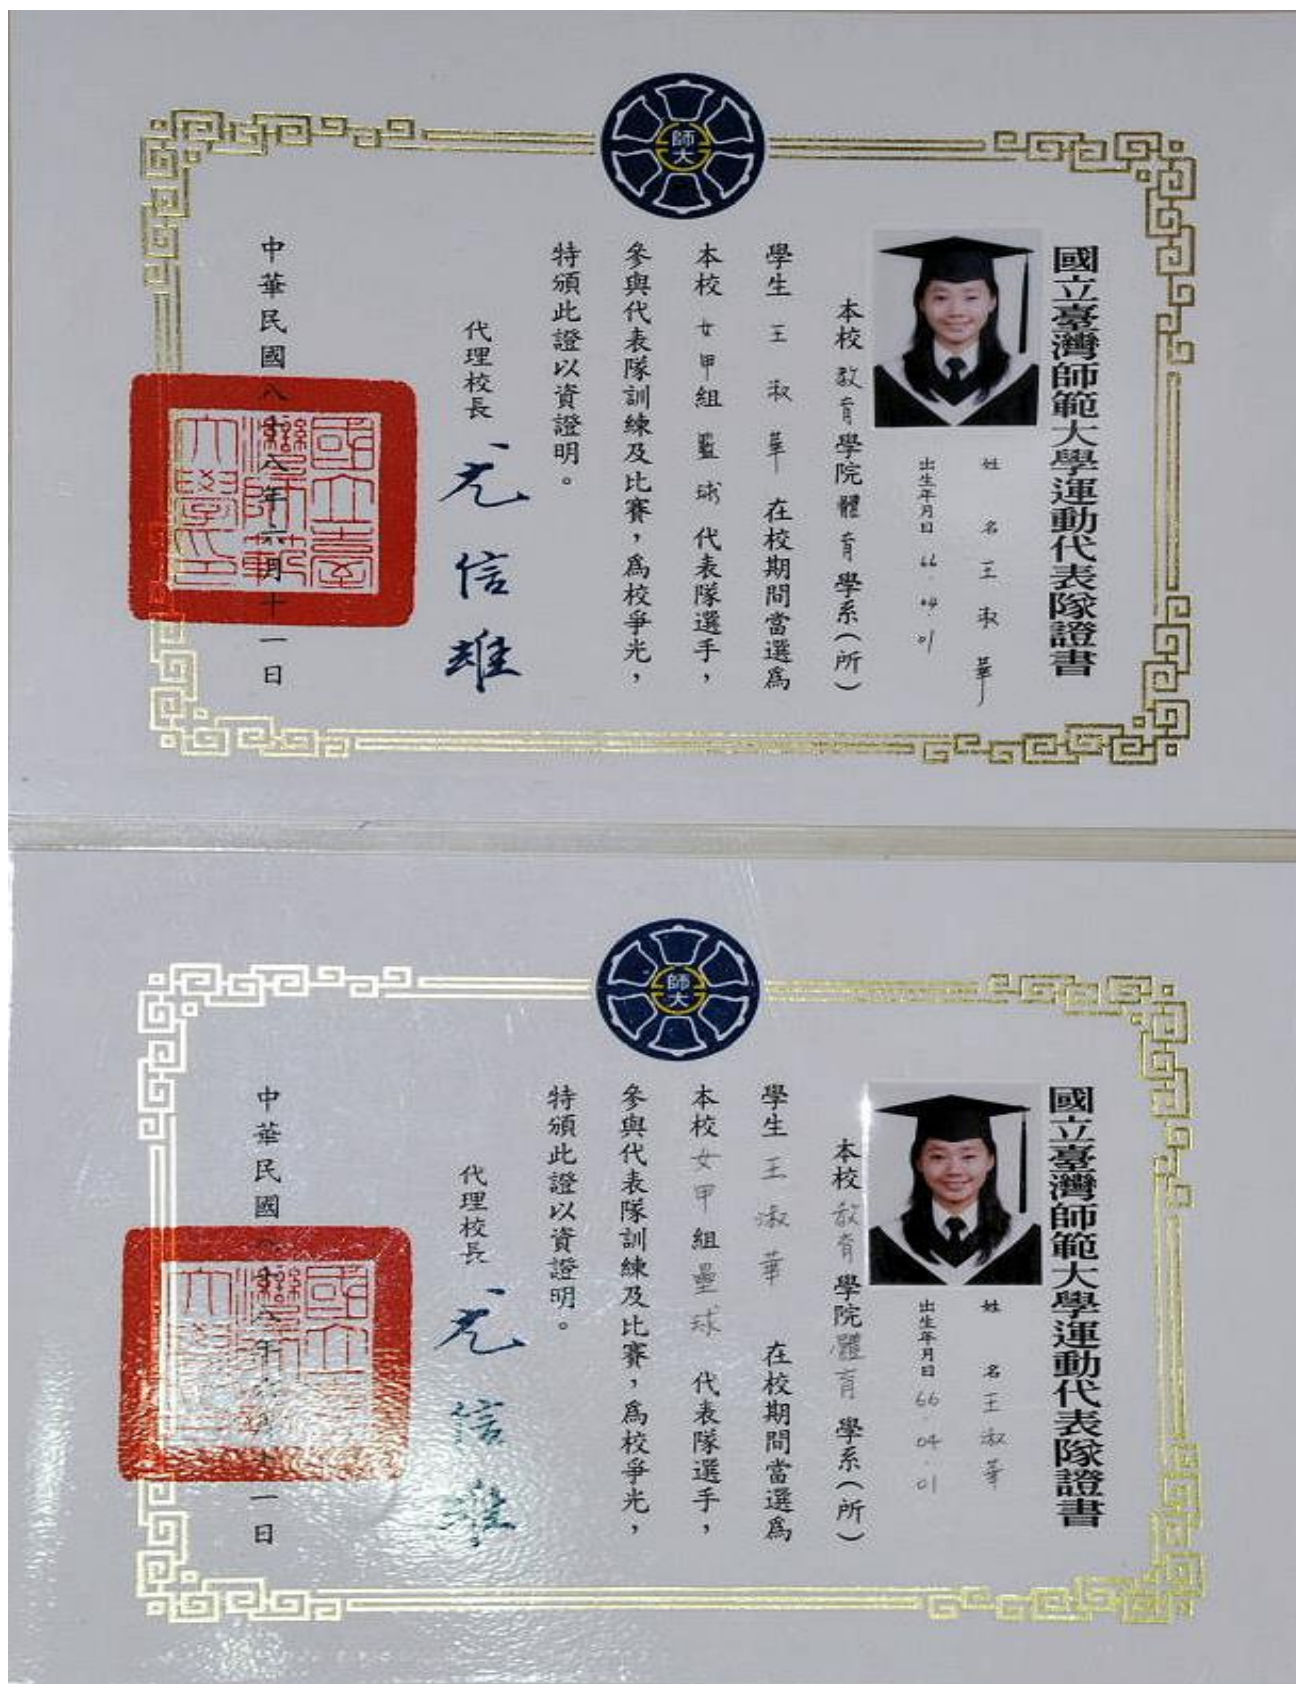 師大
國立臺灣師範大學運動代表隊證書
姓名王淑華
出生年月日 66.04.01
本校教育學院體育學系(所)
學生王淑華在校期間當選為
本校女甲組籃球代表隊選手，
參與代表隊訓練及比賽，為校爭光，
特頒此證以資證明。
代理校長
中華民國八十八年六月十一日
國立臺灣師範大學印
師大
國立臺灣師範大學運動代表隊證書
姓名王淑華
出生年月日 66.04.01
本校教育學院體育學系(所)
學生王淑華在校期間當選為
本校女甲組壘球代表隊選手，
參與代表隊訓練及比賽，為校爭光，
特頒此證以資證明。
代理校長
中華民國八十八年六月十一日